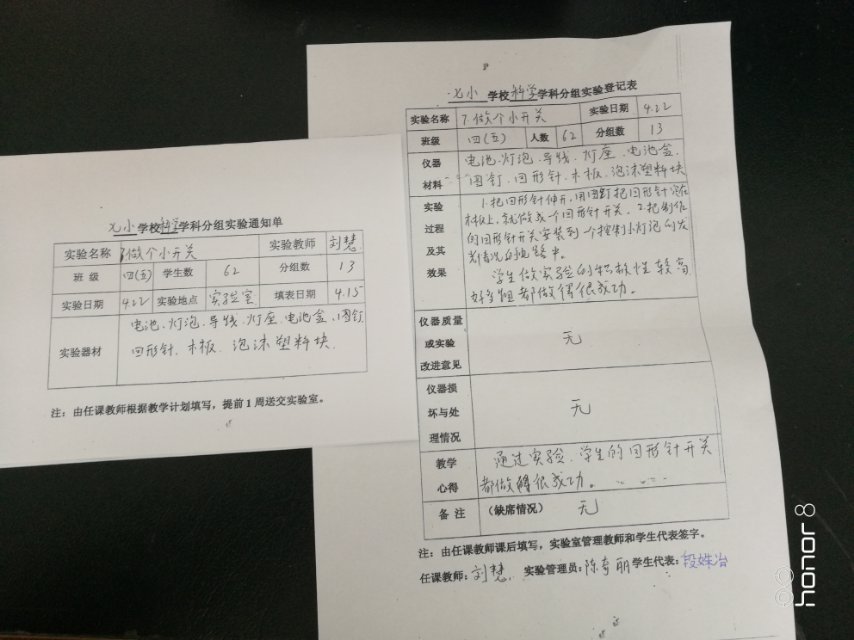 七小 学校科学学科分组实验通知单
实验名称 7做个小开关 实验教师 刘慧
班 级 四(五) 学生数 62 分组数 13
实验日期 4.22 实验地点 实验室 填表日期 4.15
实验器材 电池、灯泡、导线、灯座、电池盒、图钉
回形针、木板、泡沫塑料块
注：由任课教师根据教学计划填写，提前1周送交实验室。
七小 学校科学学科分组实验登记表
实验名称 7做个小开关 实验日期 4.22
班级 四(五) 人数 62 分组数 13
仪器材料 电池、灯泡、导线、灯座、电池盒、
图钉、回形针、木板、泡沫塑料块
实验过程及其效果 1.把回形针伸开，用图钉把回形针定在
木板上，就做成一个回形针开关。2.把制作
的回形针开关安装到一个控制小灯泡的发
光情况的电路中。
学生做实验的积极性较高
好多组都做得很成功。
仪器质量或实验改进意见 无
仪器损坏与处理情况 无
教学心得 通过实验，学生的回形针开关
都做得很成功。
备 注 (缺席情况) 无
注：由任课教师课后填写，实验室管理教师和学生代表签字。
任课教师：刘慧 实验管理员：陈奇丽 学生代表：段姝冶
honor 8